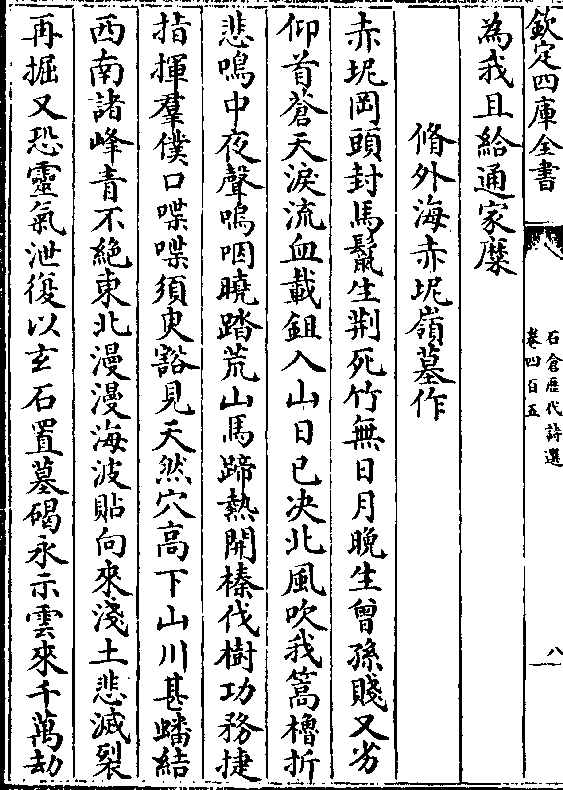 欽定四庫全書
石倉歷代詩選
卷四百五
八
為我且給通家麋
脩外海赤坭嶺墓作
赤坭岡頭封馬鬛生荆死竹無日月晚生曾孫賤又劣
仰首蒼天淚流血載鉏入山日已决北風吹我篙櫓折
悲鳴中夜聲嗚咽曉踏荒山馬蹄熱開榛伐樹功務捷
指揮羣僕口喋喋須臾豁見天然穴高下山川甚蟠結
西南諸峰青不絕東北漫漫海波貼向來淺土悲滅裂
再掘又恐靈氣泄復以玄石置墓碣永示雲來千萬劫